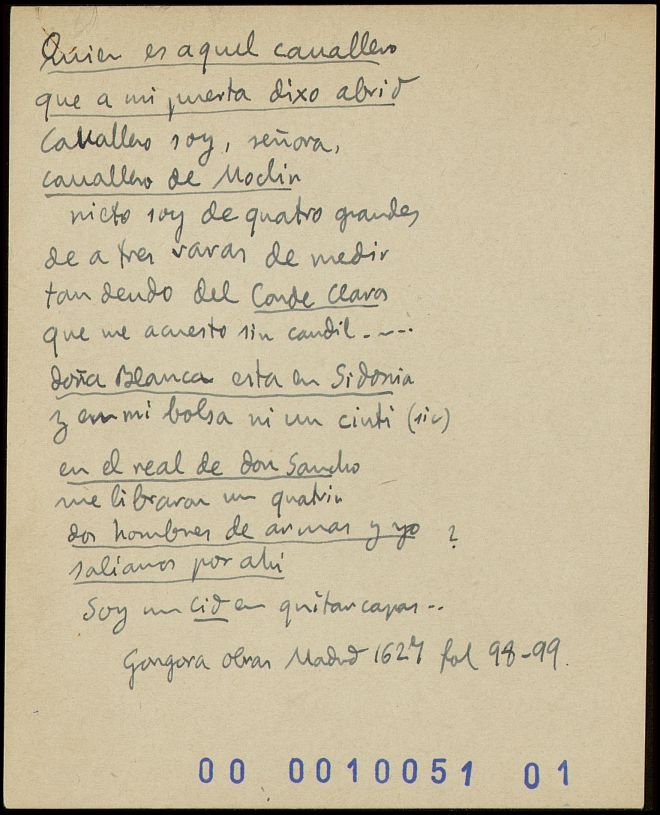 Quien es aquel cauallero
que a mi puerta dixo abrid
Cauallero soy, señora,
cauallero de Moclin
nieto soy de quatro grandes
de a tres varas de medir
tan deudo del Conde Claros
que me acuesto sin candil----
doña Blanca esta en Sidonia
y en mi bolsa ni un cinti (sic)
en el real de don Sancho
me libraron un quatrin
dos hombres de armas y yo ?
salianos por ahi
Soy un Cid en quitar capas --
Gongora obras Madrid 1627 fol 98-99.
00 0010051 01